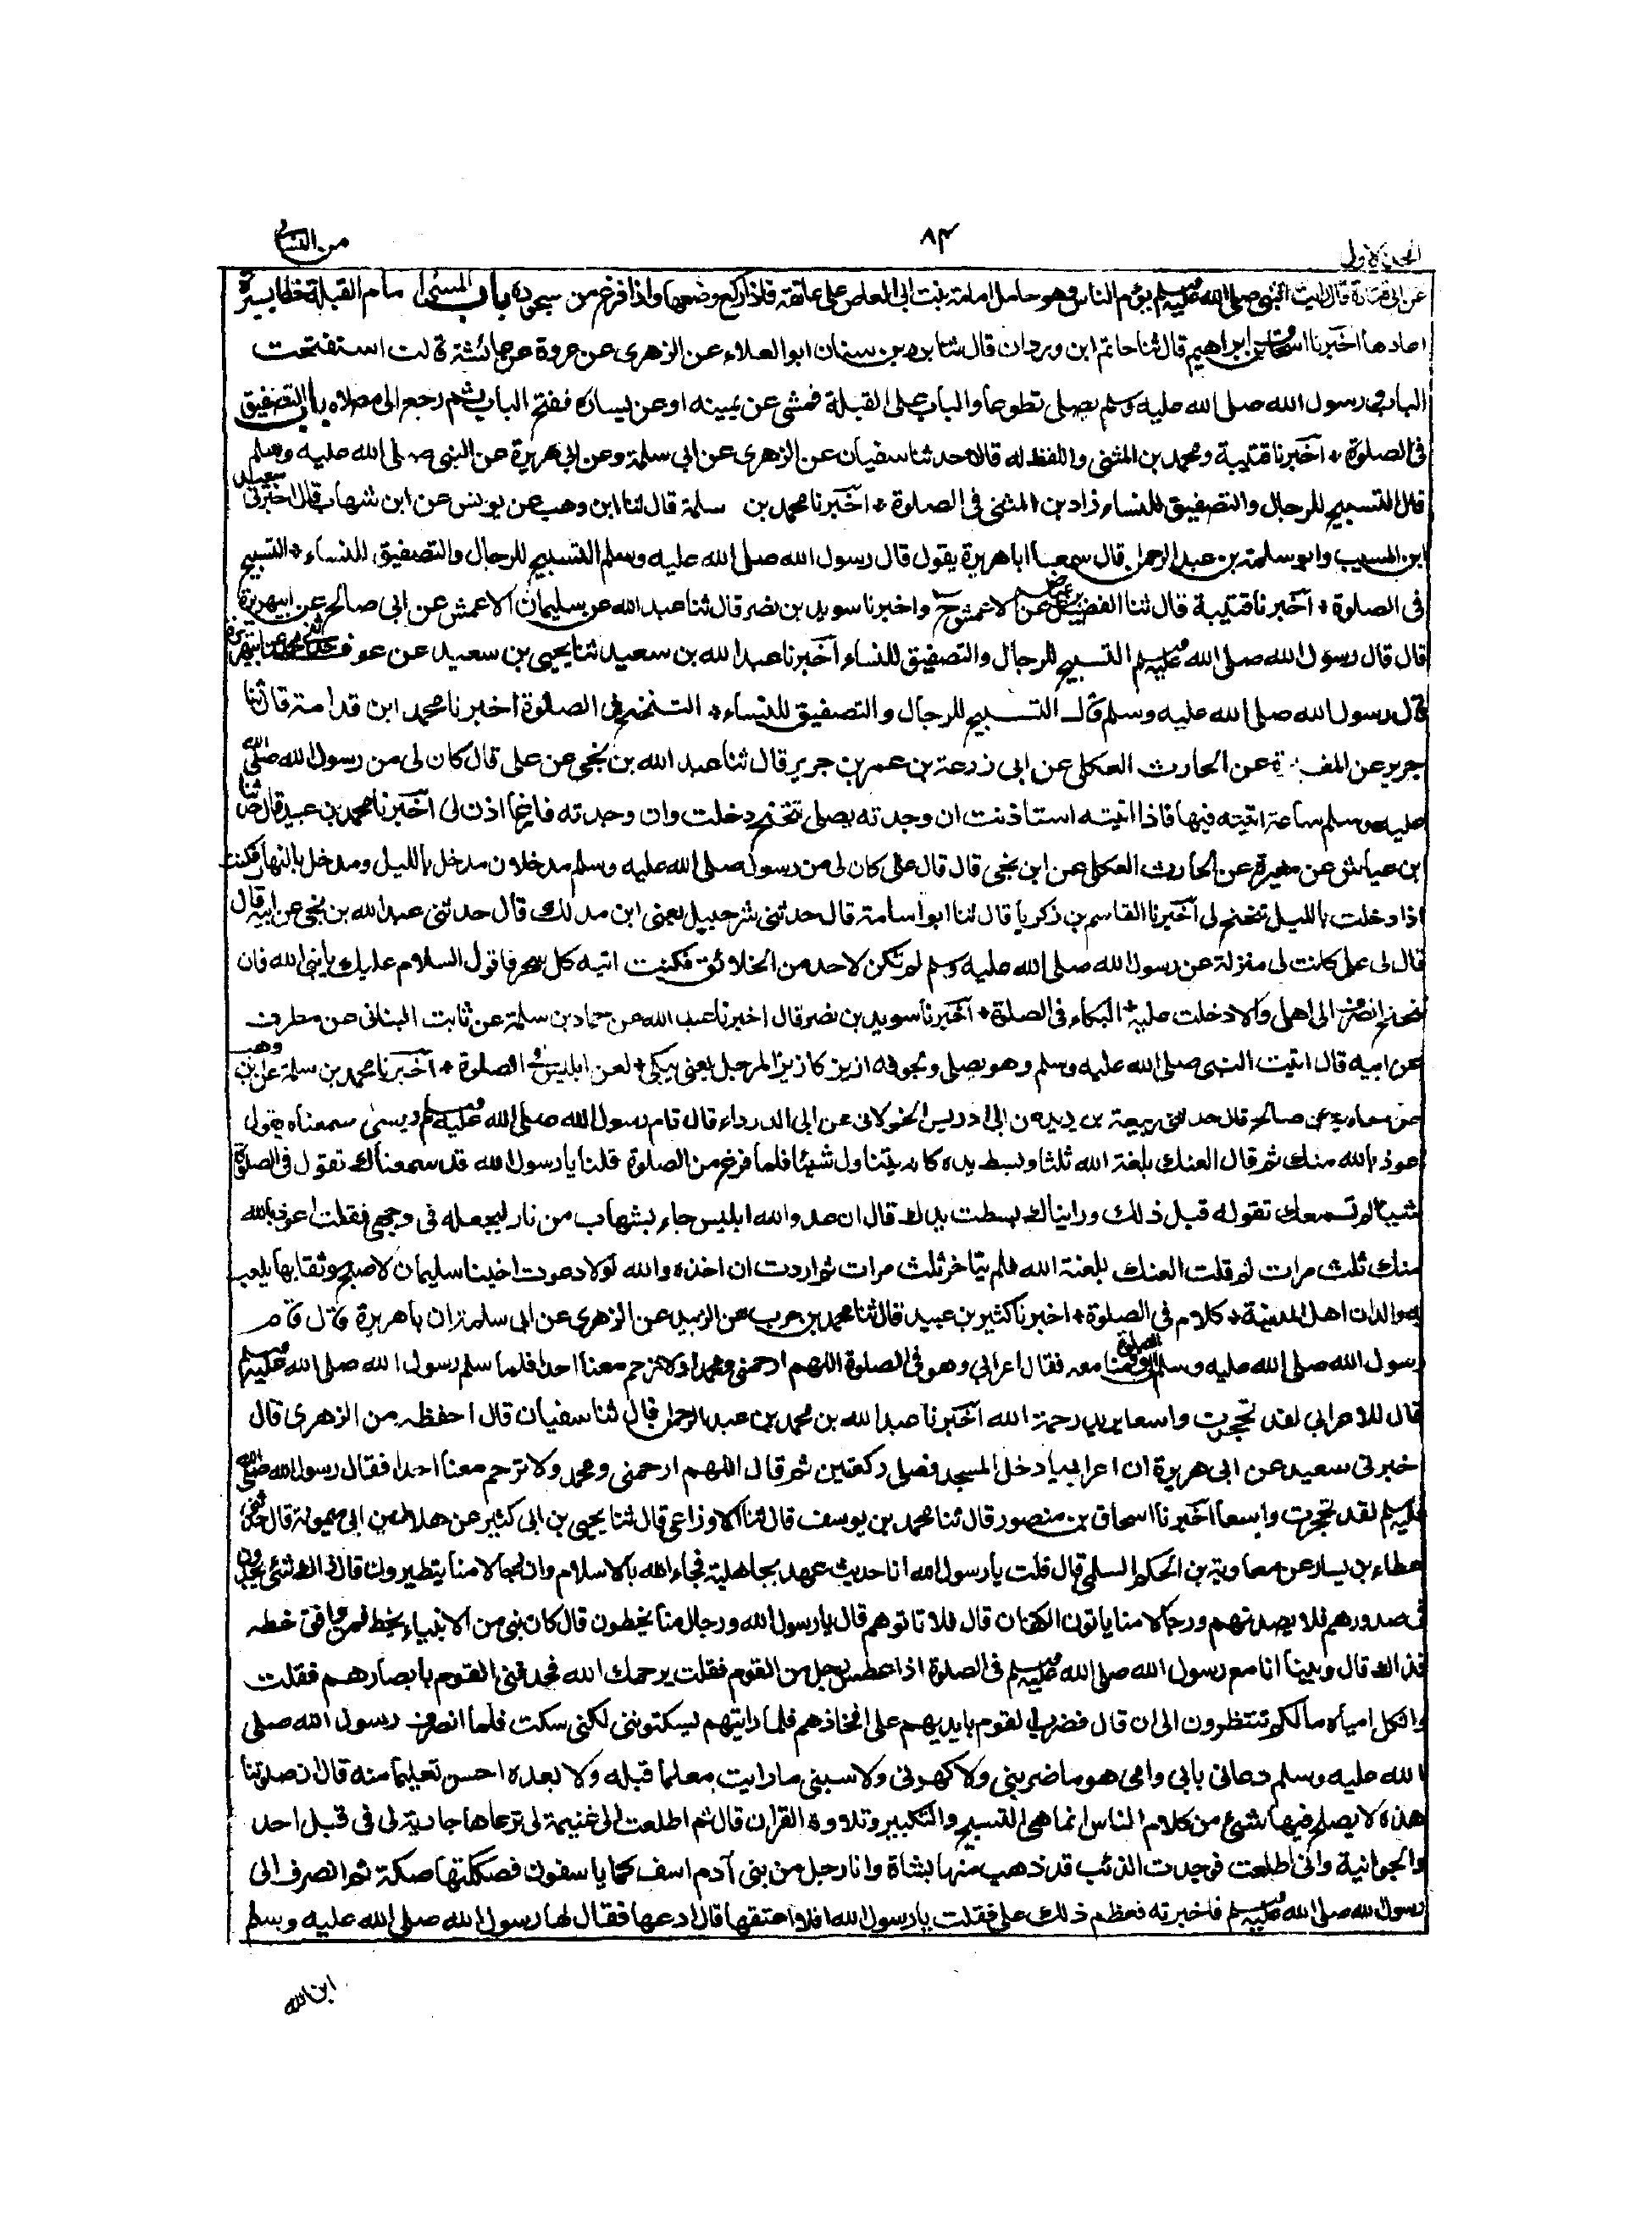 الجزء الاول
٨٣
من النسائي
عن ابي قتادة قال رايت النبي صلى الله عليه وسلم يؤم الناس وهو حامل امامة بنت ابي العاص على عاتقه فاذا ركع وضعها واذا فرغ من سجوده باب المشي امام القبلة خطا يسيرة
اعادها اخبرنا اسحاق بن ابراهيم قال ثنا حاتم ابن وردان قال ثنا برد بن سنان ابو العلاء عن الزهري عن عروة عن عائشة قالت استفتحت
الباب ورسول الله صلى الله عليه وسلم يصلي تطوعا والباب على القبلة فمشى عن يمينه او عن يساره ففتح الباب ثم رجع الى مصلاه باب التصفيق
في الصلوة * اخبرنا قتيبة ومحمد بن المثنى واللفظ له قالا حدثنا سفيان عن الزهري عن ابي سلمة وعن ابي هريرة عن النبي صلى الله عليه وسلم
قال التسبيح للرجال والتصفيق للنساء زاد بن المثنى في الصلوة * اخبرنا محمد بن سلمة قال ثنا ابن وهب عن يونس عن ابن شهاب قال اخبرني سعيد
ابن المسيب وابو سلمة بن عبد الرحمن قال سمعا ابا هريرة يقول قال رسول الله صلى الله عليه وسلم التسبيح للرجال والتصفيق للنساء * التسبيح
في الصلوة * اخبرنا قتيبة قال ثنا الفضيل بن عياض عن الاعمش ح واخبرنا سويد بن نصر قال ثنا عبد الله عن سليمان الاعمش عن ابي صالح عن ابي هريرة
قال قال رسول الله صلى الله عليه وسلم التسبيح للرجال والتصفيق للنساء اخبرنا عبيد الله بن سعيد ثنا يحيى بن سعيد عن عوف حدثني محمد عن ابي هريرة
قال رسول الله صلى الله عليه وسلم قال التسبيح للرجال والتصفيق للنساء * التنحنح في الصلوة اخبرنا محمد ابن قدامة قال ثنا
جرير عن المغيرة عن الحارث العكلي عن ابي زرعة بن عمر بن جرير قال ثنا عبد الله بن نجي عن علي قال كان لي من رسول الله صلى الله
عليه وسلم ساعة اتيته فيها فاذا اتيته استاذنت ان وجدته يصلي تنحنح دخلت وان وجدته فارغا اذن لي اخبرنا محمد بن عبيد قال ثنا
ابن عياش عن مغيرة عن الحارث العكلي عن ابن نجي قال قال علي كان لي من رسول صلى الله عليه وسلم مدخلان مدخل بالليل ومدخل بالنهار فكنت
اذا دخلت بالليل تنحنح لي اخبرنا القاسم بن زكريا قال ثنا ابو اسامة قال حدثني شرحبيل يعني ابن مدلك قال حدثني عبد الله بن نجي عن ابيه قال
قال لي علي كانت لي منزلة من رسول الله صلى الله عليه وسلم لم تكن لاحد من الخلائق فكنت اتيه كل سحر فاقول السلام عليك يا نبي الله فان
تنحنح انصرفت الى اهلي والا دخلت عليه * البكاء في الصلوة * اخبرنا سويد بن نصر قال اخبرنا عبد الله عن حماد بن سلمة عن ثابت البناني عن مطرف
عن ابيه قال اتيت النبي صلى الله عليه وسلم وهو يصلي ولجوفه ازيز كازيز المرجل يعني يبكي * لعن ابليس في الصلوة * اخبرنا محمد بن سلمة عن ابن وهب
عن معاوية بن صالح قال حدثني ربيعة بن يزيد عن ابي ادريس الخولاني عن ابي الدرداء قال قام رسول الله صلى الله عليه وسلم يصلي سمعناه يقول
اعوذ بالله منك ثم قال العنك بلعنة الله ثلثا وبسط يده كانه يتناول شيئا فلما فرغ من الصلوة قلنا يا رسول الله قد سمعناك تقول في الصلوة
شيئا لم نسمعك تقوله قبل ذلك وراينالك بسطت يدك قال ان عدو الله ابليس جاء بشهاب من نار ليجعله في وجهي فقلت اعوذ بالله
منك ثلث مرات ثم قلت العنك بلعنة الله فلم يتاخر ثلث مرات ثم اردت ان اخذه والله لولا دعوت اخينا سليمان لاصبح موثقا بها يلعب
به والدان اهل المدينة * كلام في الصلوة * اخبرنا كثير بن عبيد قال ثنا محمد بن حرب عن الزبيد عن الزهري عن ابي سلمة ان باهريرة قال قام
رسول الله صلى الله عليه وسلم الى الصلوة وقمنا معه فقال اعرابي وهو في الصلوة اللهم ارحمني ومحمدا ولا ترحم معنا احدا فلما سلم رسول الله صلى الله عليه وسلم
قال للاعرابي لقد تحجرت واسعا يريد رحمة الله اخبرنا عبد الله بن محمد بن عبد الرحمن قال ثنا سفيان قال احفظه من الزهري قال
خبرني سعيد عن ابي هريرة ان اعرابيا دخل المسجد فصلى ركعتين ثم قال اللهم ارحمني ومحمد ولا ترحم معنا احدا فقال رسول الله صلى الله
عليه وسلم لقد تحجرت واسعا اخبرنا اسحاق بن منصور قال ثنا محمد بن يوسف قال ثنا الاوزاعي قال ثنا يحيى بن ابي كثير عن هلال بن ابي ميمونة قال حدثني
عطاء بن يسار عن معاوية بن الحكم السلمي قال قلت يا رسول الله انا حديث عهد بجاهلية فجاء الله بالاسلام وان رجالا منا يتطيرون قال ذاك شيء يجدونه
في صدورهم فلا يصدنهم ورجالا منا ياتون الكهان قال فلا تاتوهم قال يا رسول الله ورجال منا يخطون قال كان نبي من الانبياء يخط فمن وافق خطه
فذاك قال وبينا انا مع رسول الله صلى الله عليه وسلم في الصلوة اذا عطس رجل من القوم فقلت يرحمك الله فحدقني القوم بابصارهم فقلت
واثكل امياه مالكم تنتظرون الى ان قال فضرب القوم بايديهم على افخاذهم فلما رايتهم يسكتونني لكني سكت فلما انصرف رسول الله صلى
الله عليه وسلم دعاني بابي وامي هو ما ضربني ولا كهرني ولا سبني ما رايت معلما قبله ولا بعده احسن تعليما منه قال ان صلوتنا
هذه لا يصلح فيها شيء من كلام الناس انما هي التسبيح والتكبير وتلاوة القران قال ثم اطلعت الى غنيمة لي ترعاها جارية لي في قبل احد
والجوانية واني اطلعت فوجدت الذئب قد ذهب منها بشاة وانا رجل من بني آدم اسف كما ياسفون فصككتها صكة ثم انصرف الى
رسول الله صلى الله عليه وسلم فاخبرته فعظم ذلك علي فقلت يا رسول الله افلا اعتقها قال ادعها فقال لها رسول الله صلى الله عليه وسلم
اين الله